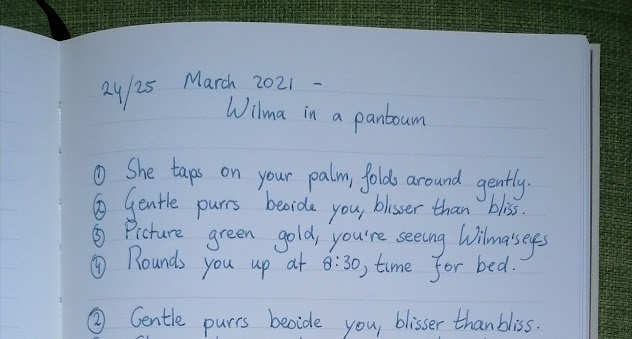 24/25 March 2021 -
Wilma in a pantoum
① She taps on your palm, folds around gently.
② Gentle purrs beside you, blisser than bliss.
③ Picture green gold, you're seeing Wilma's eyes
④ Rounds you up at 8:30, time for bed.
② Gentle purrs beside you, blisser than bliss.